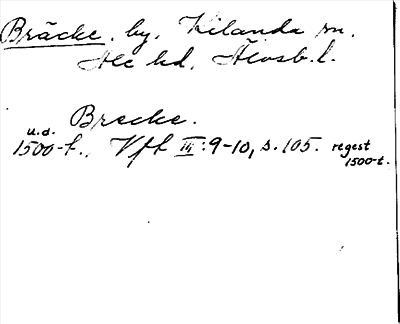 Bräcke. by. Kilanda sn.
Ale hd. Älvsb. l.
Brecke.
u.d.
1500-t., Vft III:9-10, s. 105. regest
1500-t.